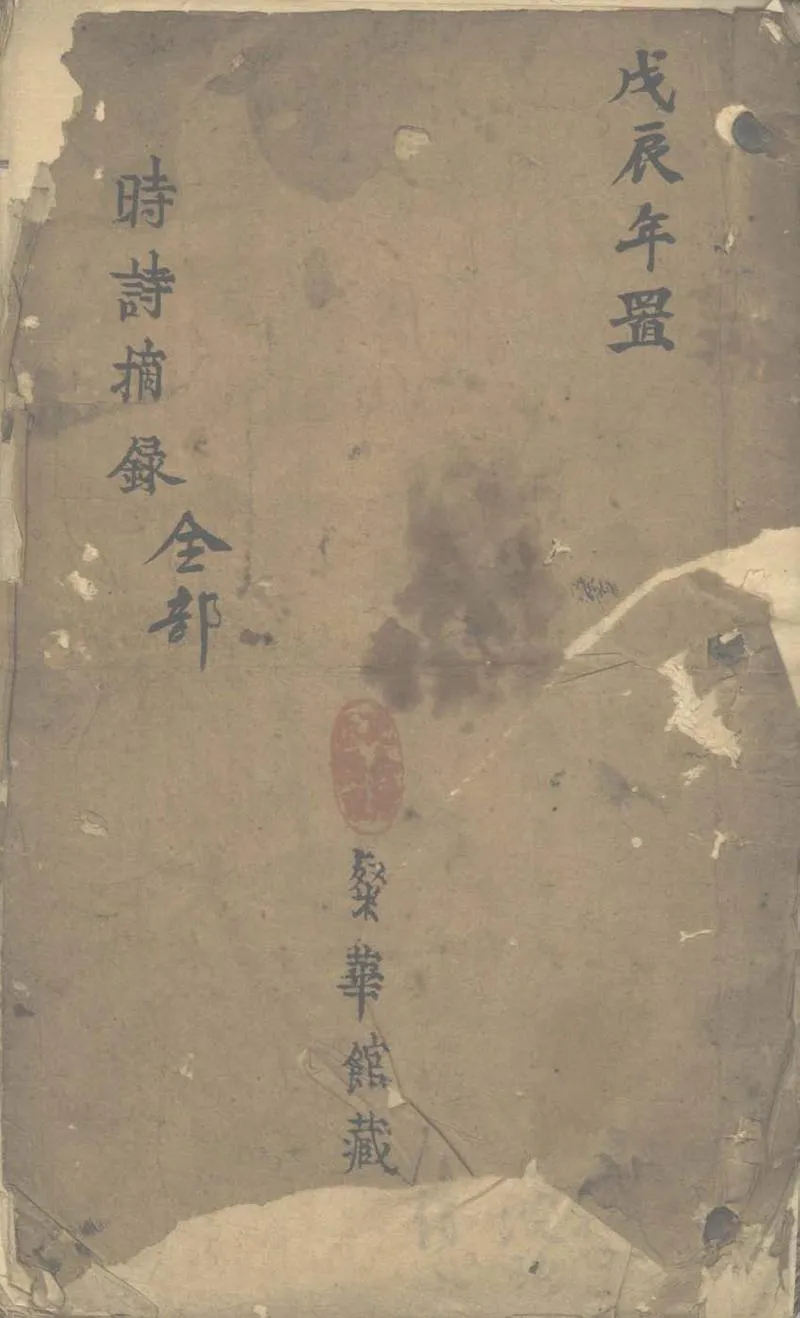 戊辰年置
粲華館藏
時詩摘録
全部